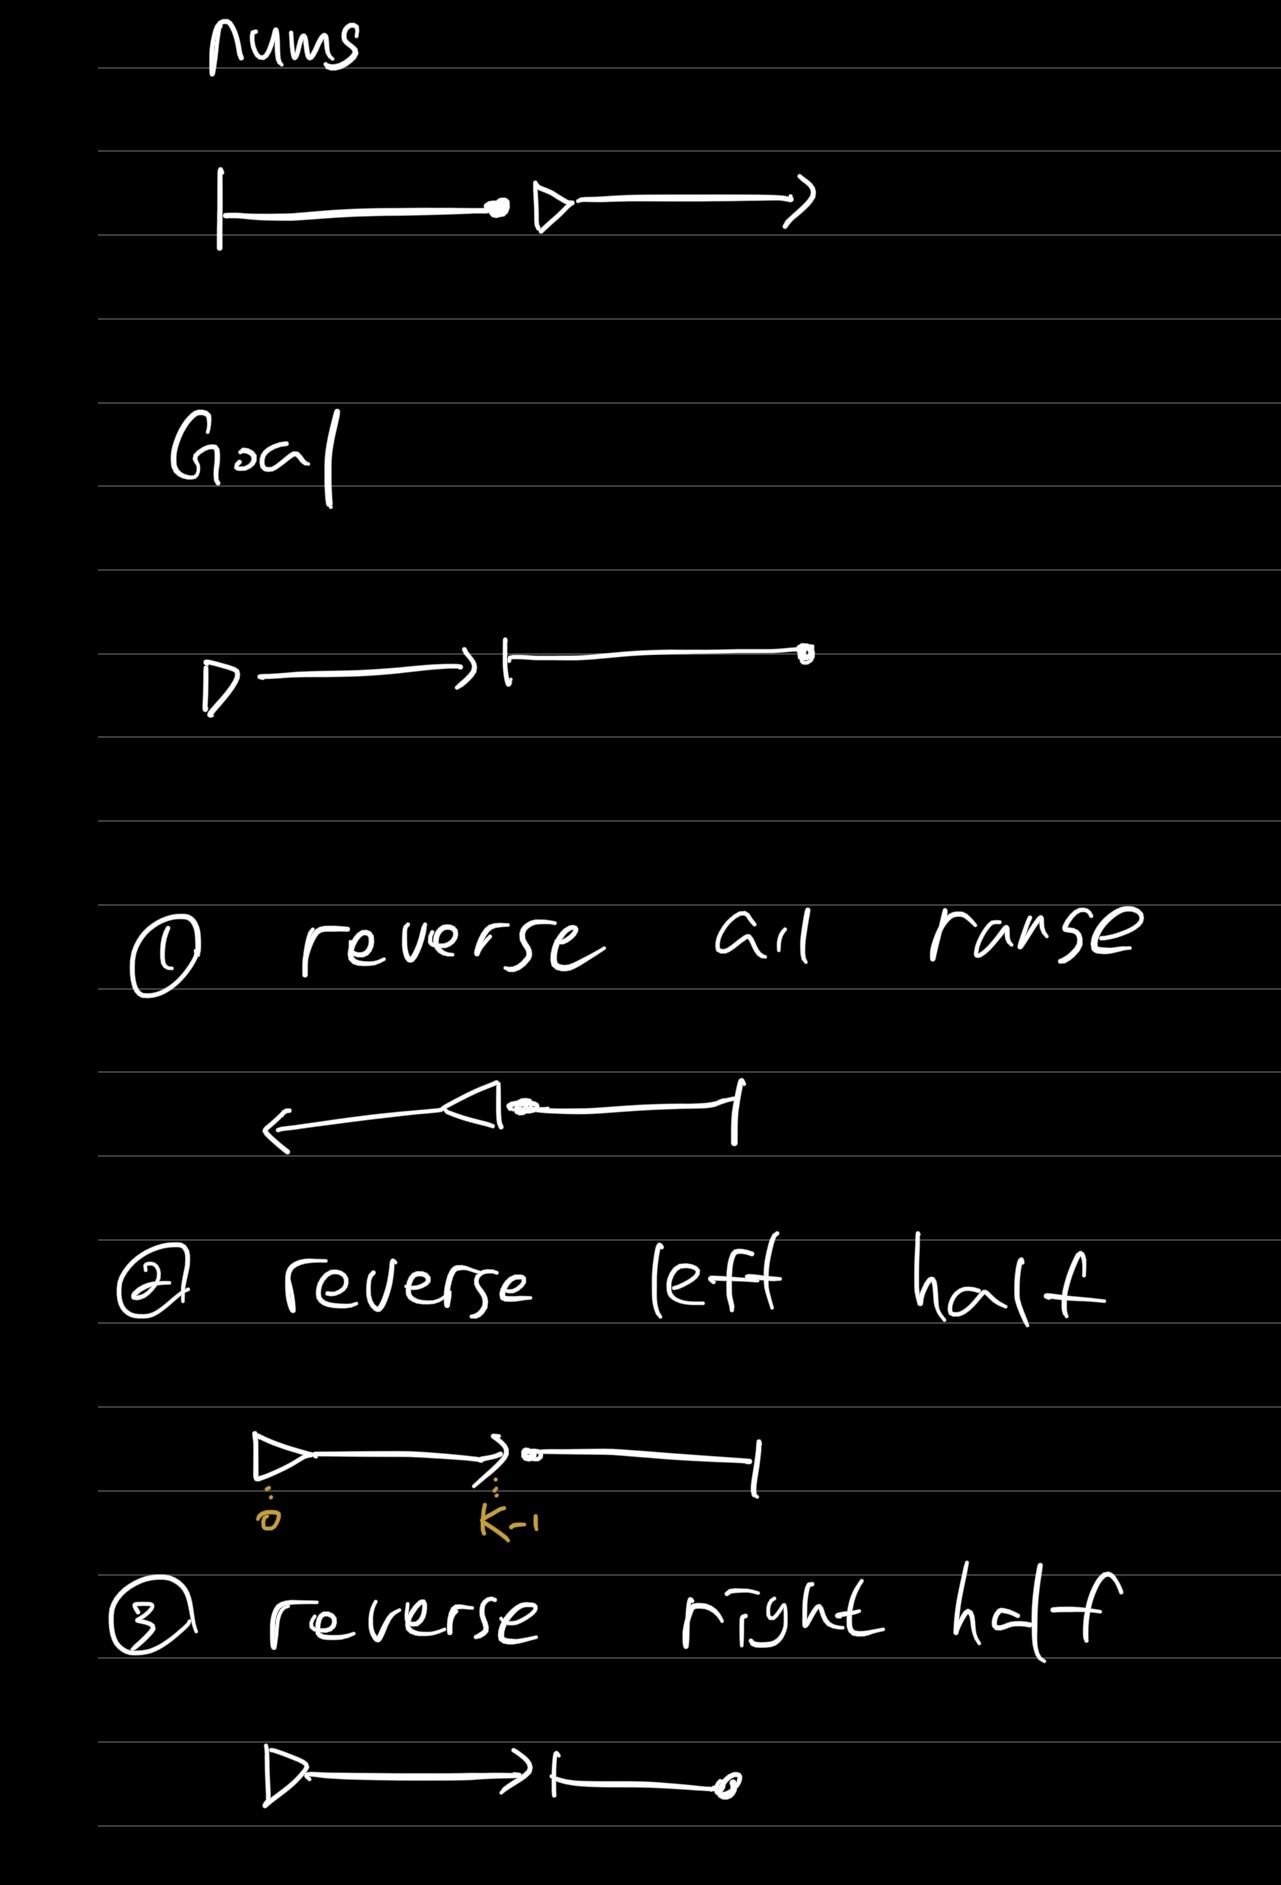 nums
Goal
① reverse all range
② reverse left half
0 K-1
③ reverse right half